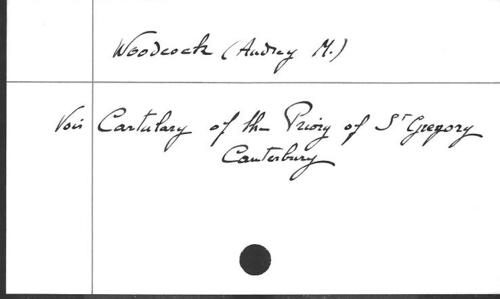 Woodcock (Audrey M.)
Vois Cartulary of the Priory of St Gregory
Canterbury